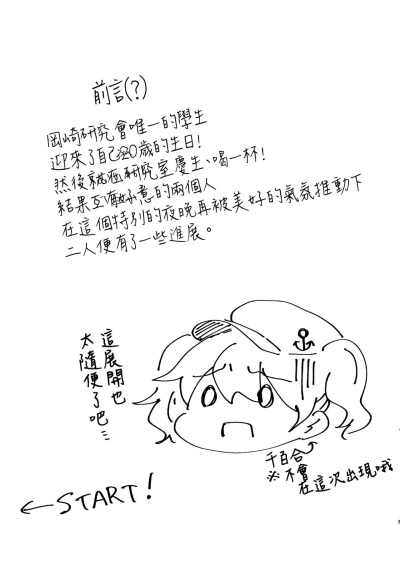 前言(?)
岡崎研究會唯一的學生
迎來了自己20歲的生日!
然後就在研究室慶生、喝一杯!
結果互有好意的兩個人
在這個特別的夜晚再被美好的氣氛推動下
二人便有了一些進展。
這展開也
太隨便了吧……
千百合
※不會
在這次出現哦
←START!